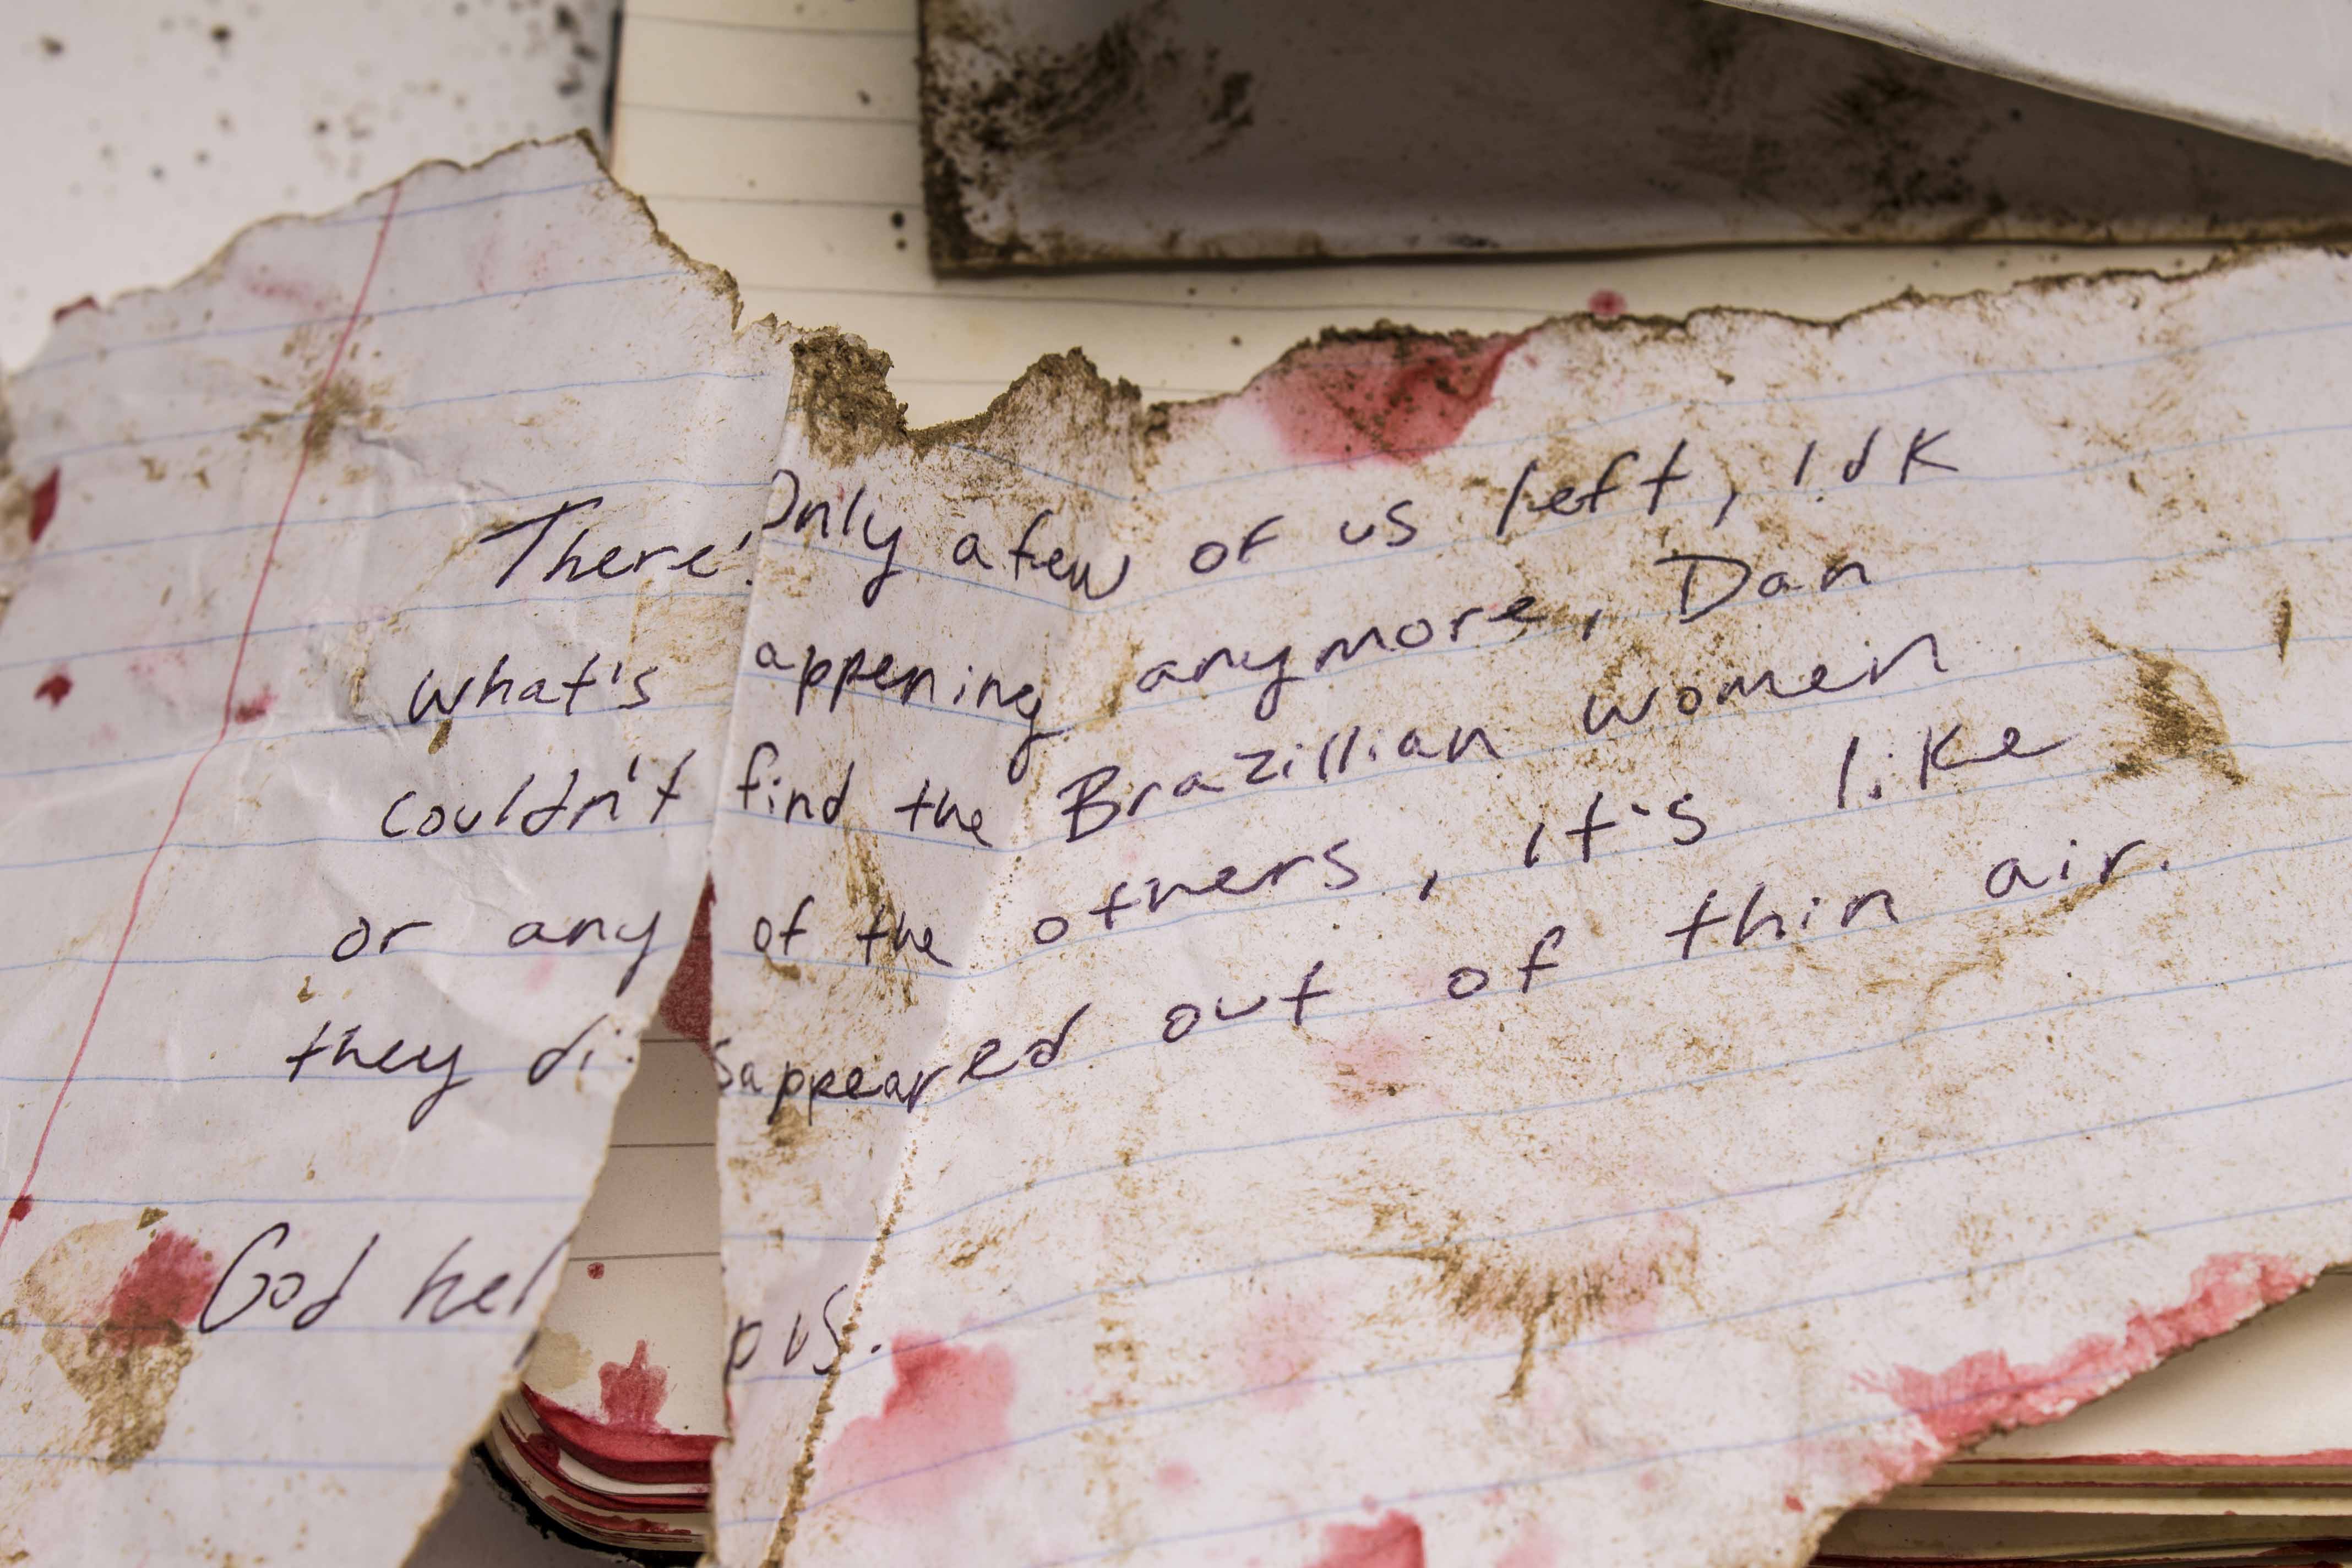 There's Only a few of us left, idk
what's appening anymore, Dan
couldn't find the Brazillian women
or any of the others, it's like
they disappeared out of thin air.
God help us.